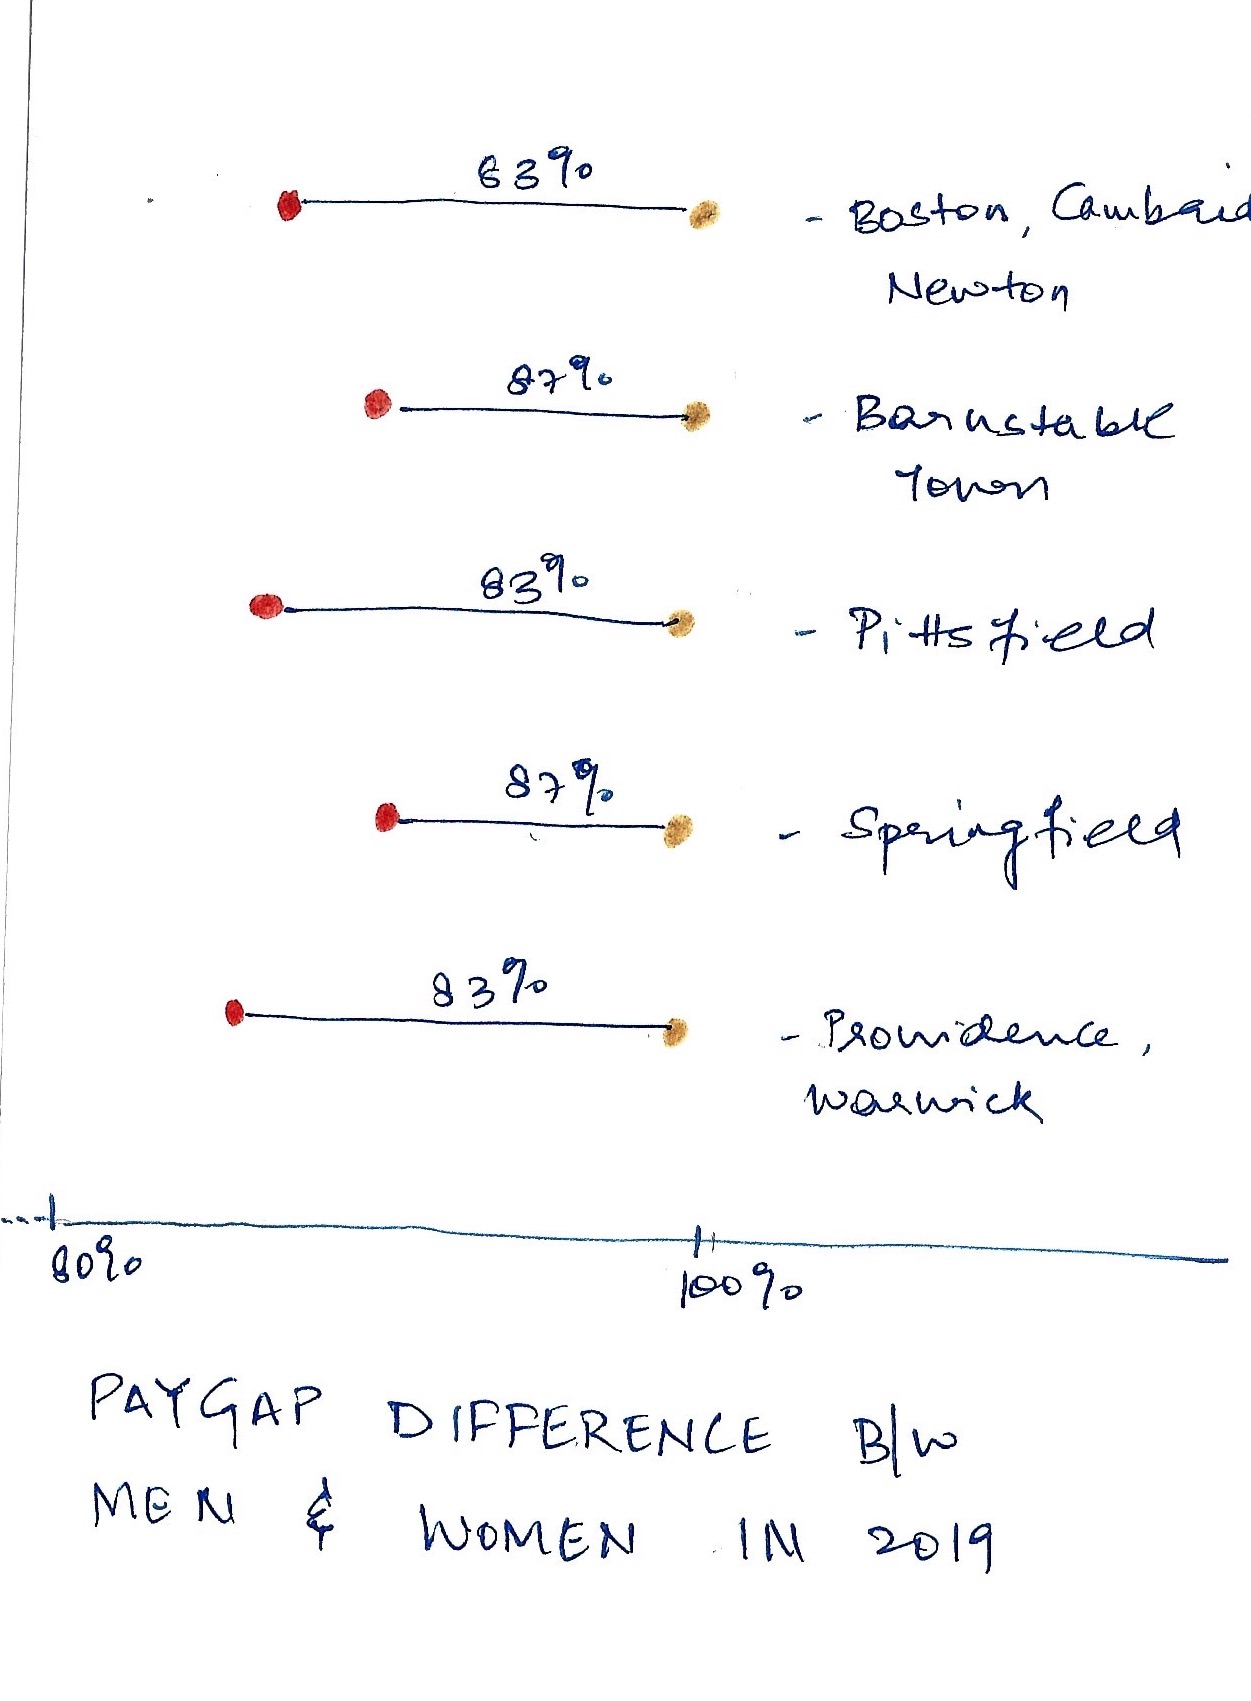 83%
- Boston, Cambrid
Newton
87%
- Barnstable
Town
83%
- Pittsfield
87%
- Springfield
83%
- Providence,
Warwick
80%
100%
PAYGAP DIFFERENCE B/W
MEN & WOMEN IN 2019